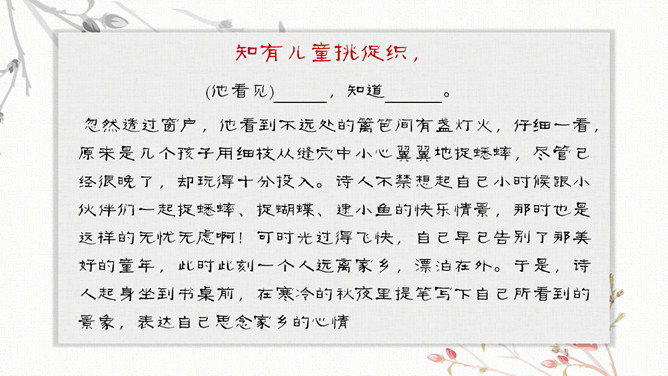 知有儿童挑促织，
(他看见)______，知道______。
忽然透过窗户，他看到不远处的篱笆间有盏灯火，仔细一看，
原来是几个孩子用细枝从缝穴中小心翼翼地捉蟋蟀，尽管已
经很晚了，却玩得十分投入。诗人不禁想起自己小时候跟小
伙伴们一起捉蟋蟀、捉蝴蝶、逮小鱼的快乐情景，那时也是
这样的无忧无虑啊！可时光过得飞快，自己早已告别了那美
好的童年，此时此刻一个人远离家乡，漂泊在外。于是，诗
人起身坐到书桌前，在寒冷的秋夜里提笔写下自己所看到的
景象，表达自己思念家乡的心情